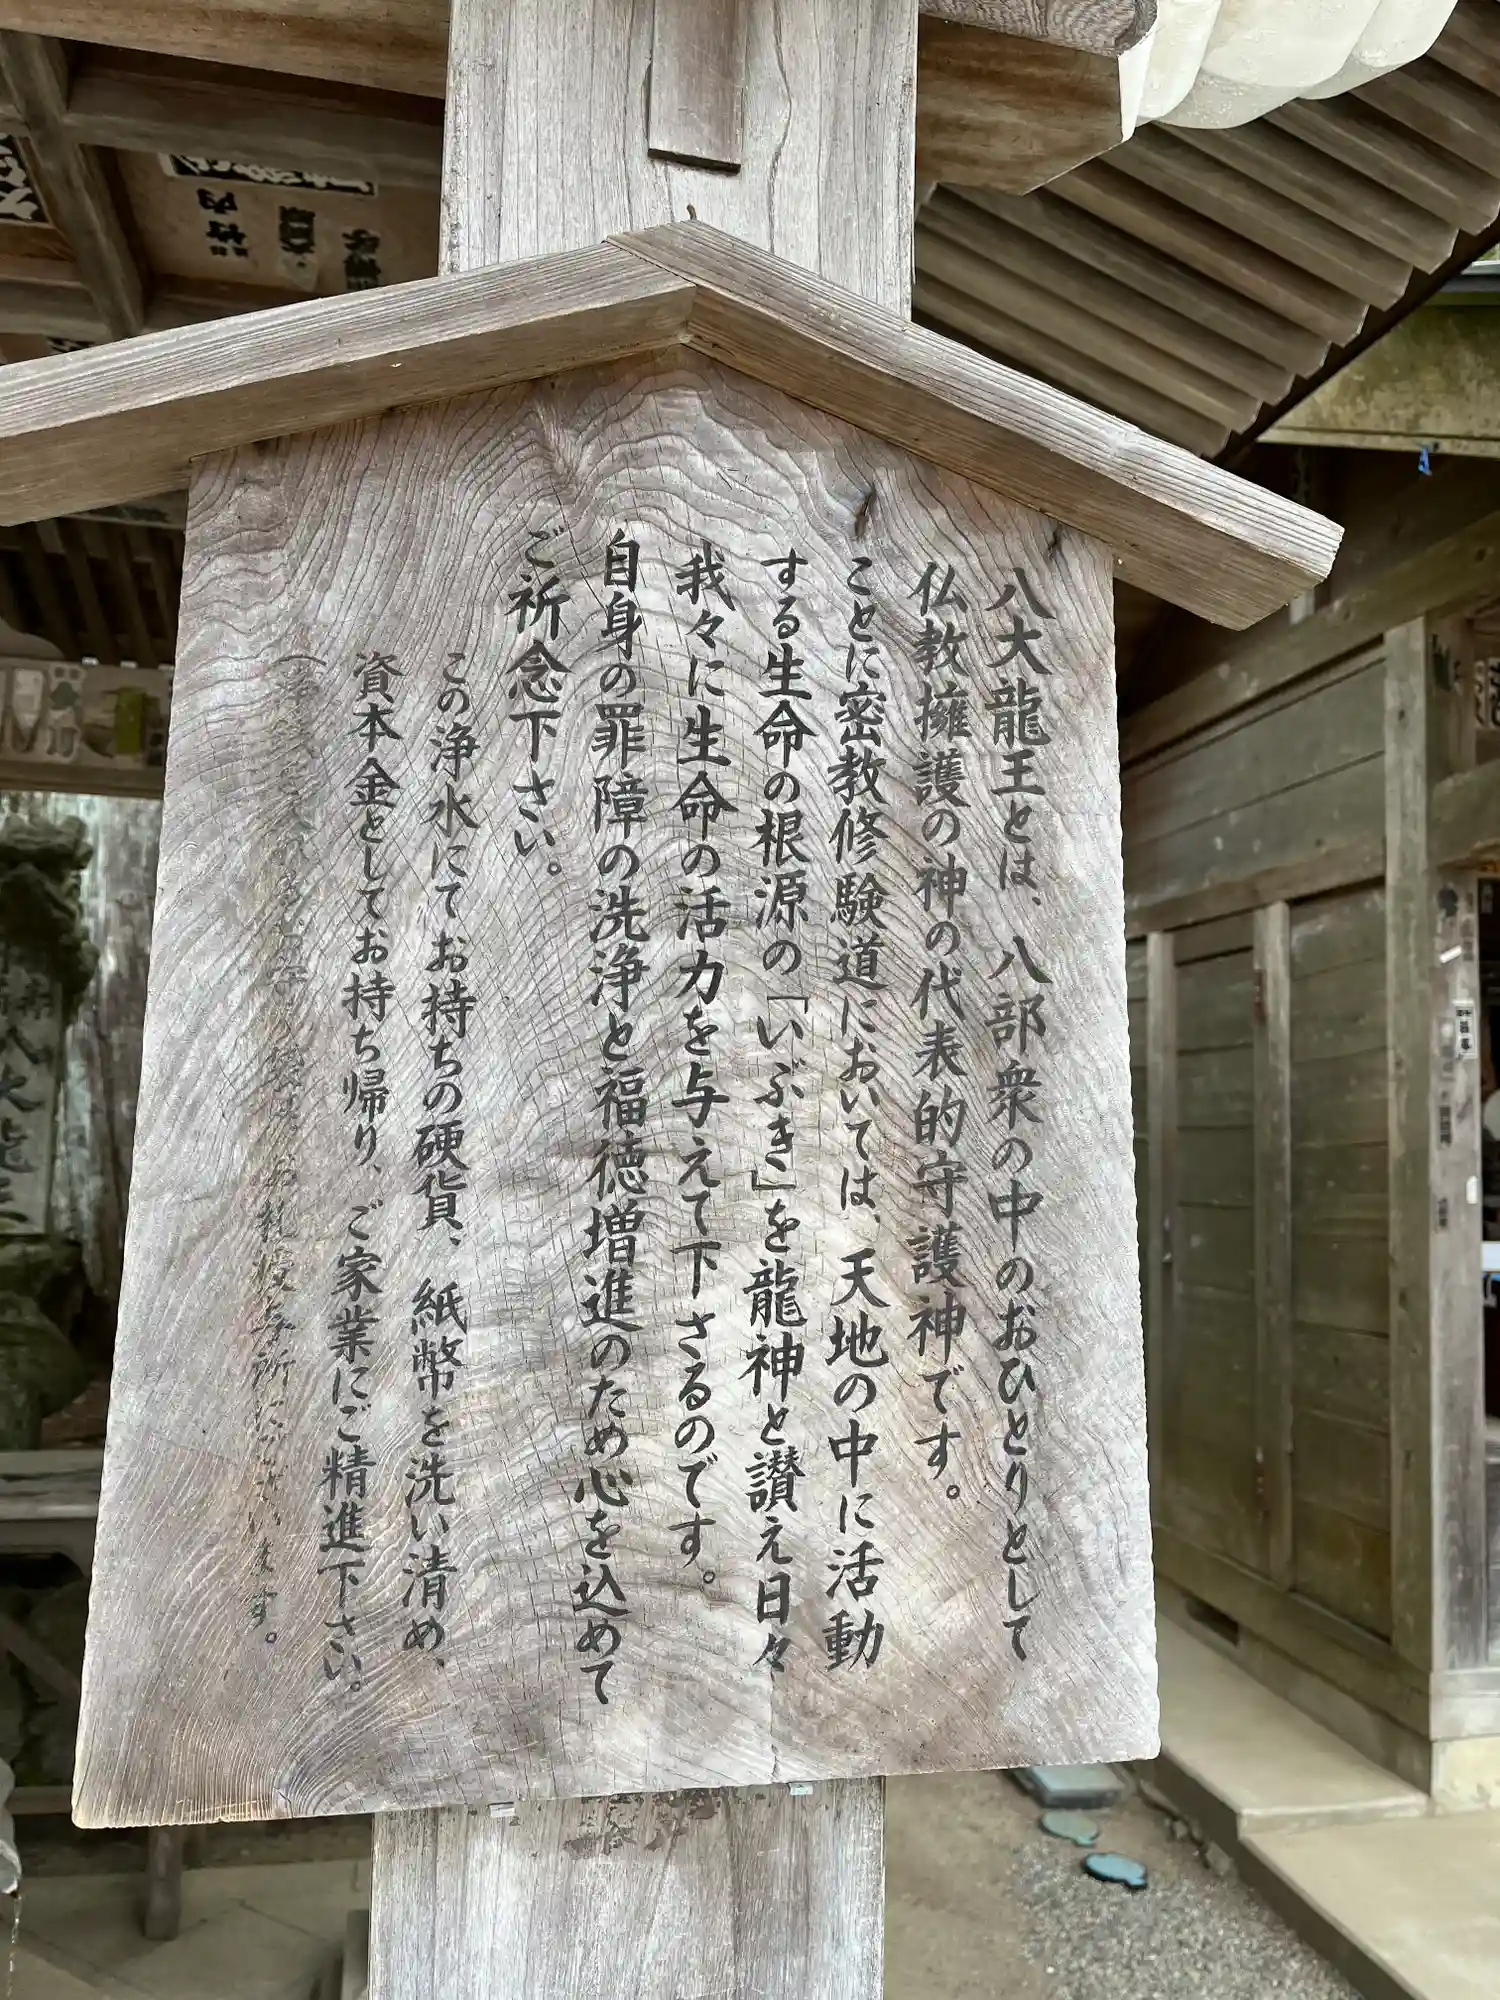 八大龍王とは、八部衆の中のおひとりとして
仏教擁護の神の代表的守護神です。
ことに密教修験道においては、天地の中に活動
する生命の根源の「いぶき」を龍神と讃え日々
我々に生命の活力を与えて下さるのです。
自身の罪障の洗浄と福徳増進のため心を込めて
ご祈念下さい。
この浄水にてお持ちの硬貨、紙幣を洗い清め、
資本金としてお持ち帰り、ご家業にご精進下さい。
お札授与所にございます。
竹内